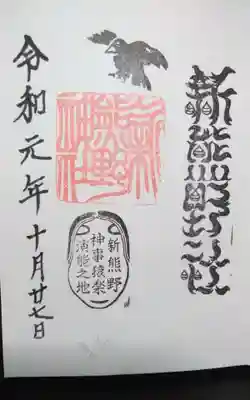 新熊野
神社
新熊野
神事猿楽
演能之地
令和元年十月廿七日